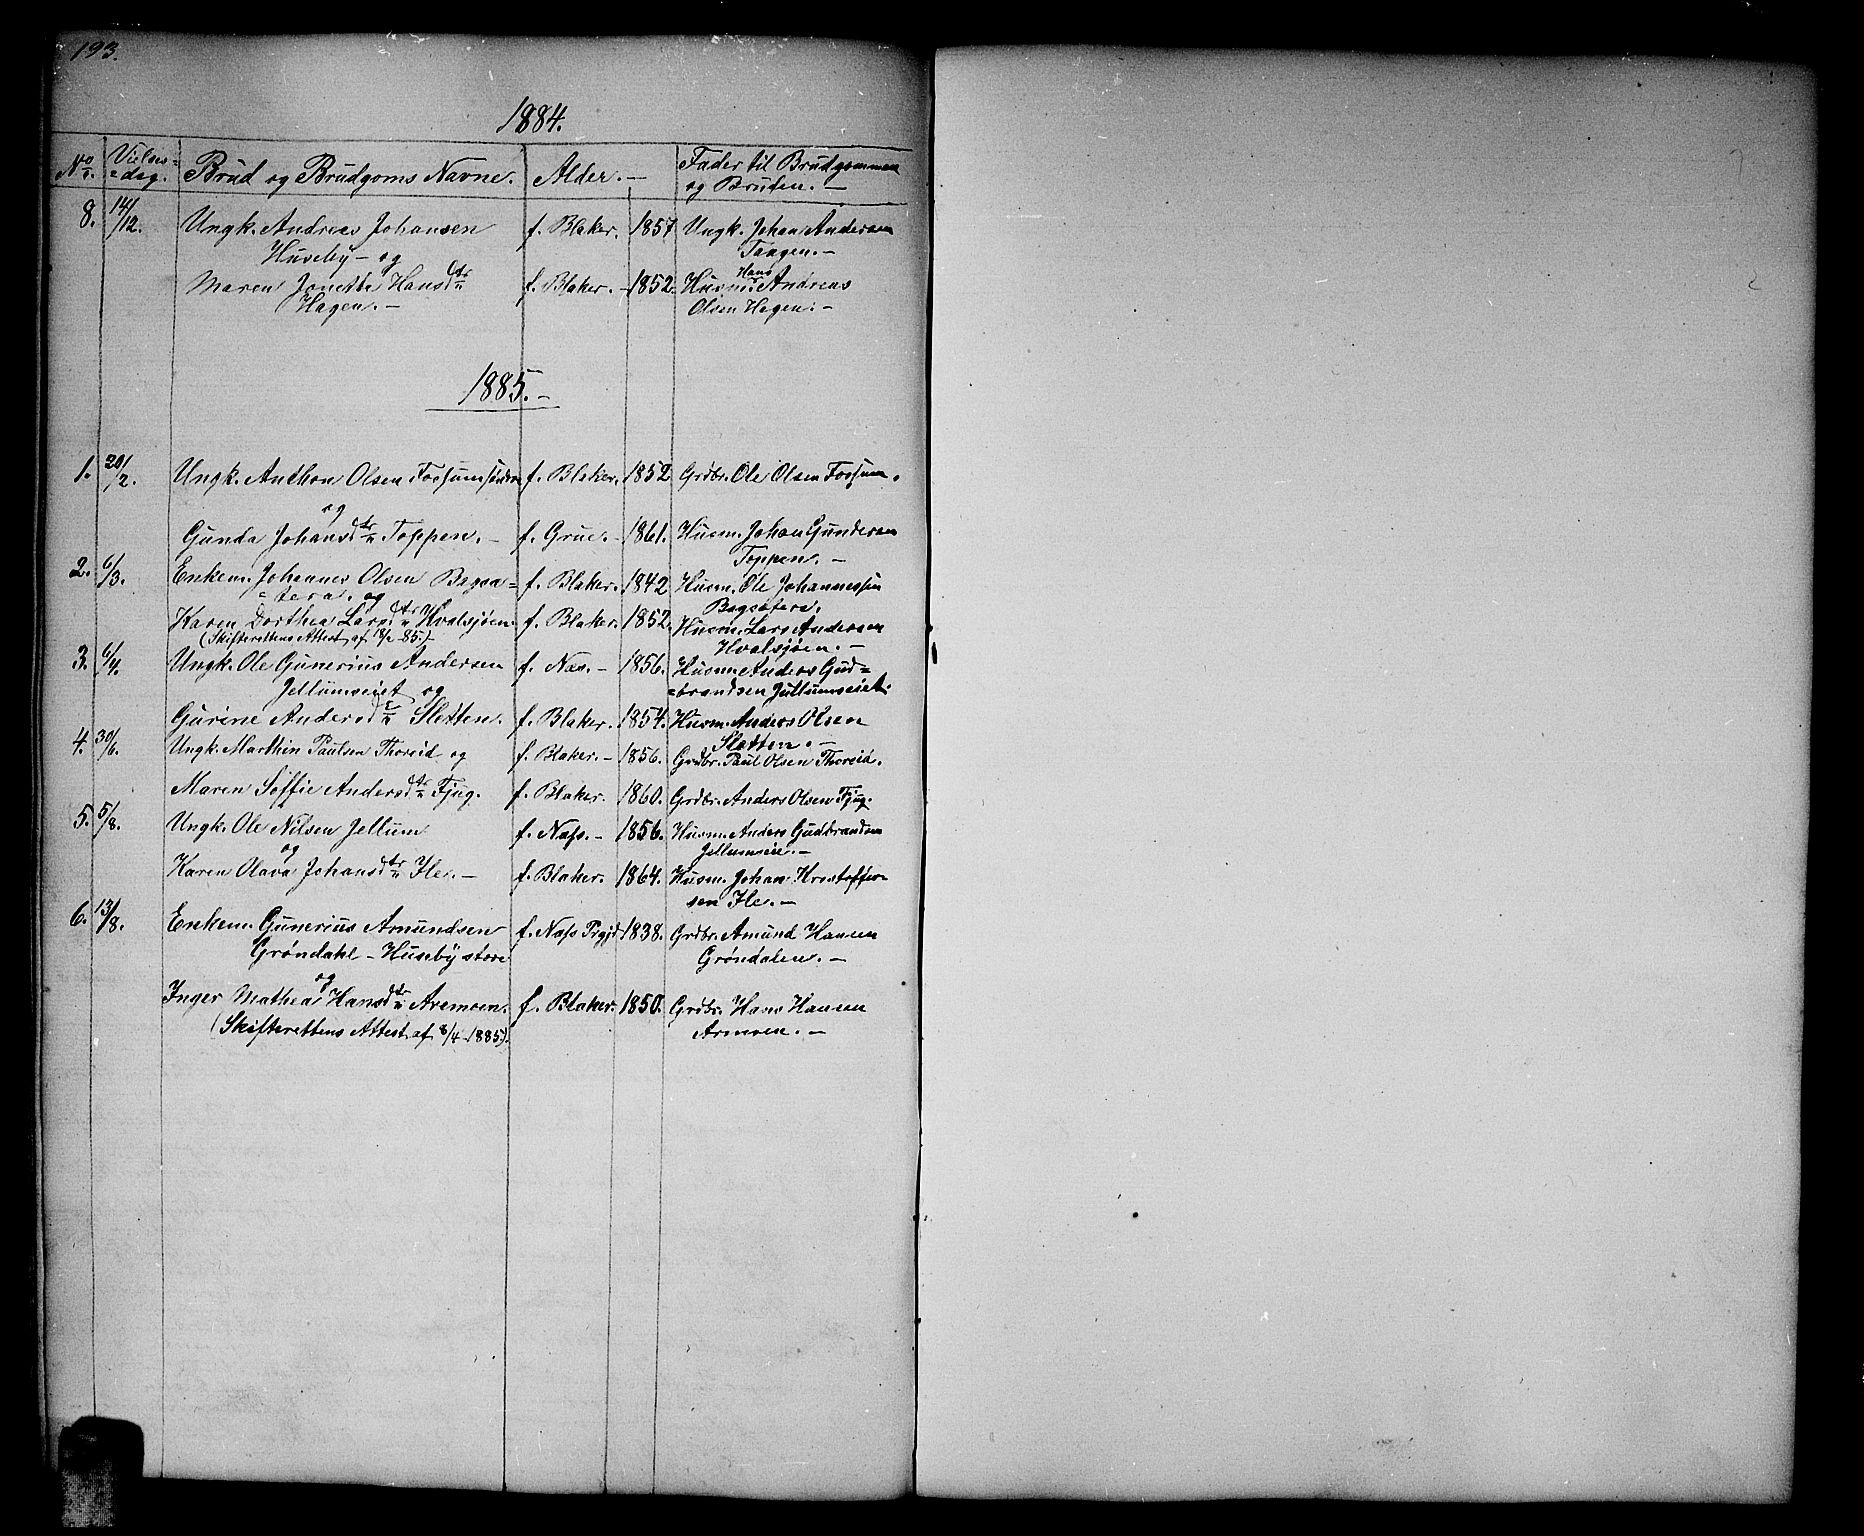 193.
1884.
No. Vielses= =dag. Brud og Brudgoms Navne. Alder. — Fader til Brudgommen og Bruden. —
8. 14/12. Ungk. Andreas Johansen f. Blaker. 1857 Ungk. Johan Andersen
Huseby — og Taagen. —
Maren Jonette Hansdtr f. Blaker. — 1852. Husm. Hans Andreas
Hagen. — Olsen Hagen. —
1885. —
1. 20/2. Ungk. Anthon Olsen Fossumsøndre f. Blaker. 1852 Grdbr. Ole Olsen Fossum.
og
Gunda Johansdtr Toppen. — f. Grue. — 1861. Husm. Johan Gundersen
Toppen. —
2. 6/3. Enkem. Johannes Olsen Bagsæ= f. Blaker. 1842 Husm. Ole Johannessen
=tera. og Bagsætera.
Karen Dorthea Larsdtr Hvalsjøen. f. Blaker. 1852. Husm. Lars Andersen
(Skifterettens Attest af 18/2 85.) Hvalsjøen. —
3. 6/4. Ungk. Ole Gunerius Andersen f. Næs. — 1856. Husm. Anders Gud=
Jellumseiet og =brandsen Jullumseiet.
Gurine Andersdtr Sletten. f. Blaker. 1854. Husm. Anders Olsen
Sletten. —
4. 30/6. Ungk. Marthin Paulsen Thoreid og f. Blaker. — 1856. Grdbr. Paul Olsen Thoreid.
Maren Soffie Andersdtr Fjug. f. Blaker. 1860. Grdbr. Anders Olsen Fjug.
5. 5/8. Ungk. Ole Nilsen Jellum f. Næs. — 1856. Husm. Anders Gudbrandsen
og Jellumseie. —
Karen Olava Johansdtr Ile. — f. Blaker. 1864. Husm. Johan Kristoffer=
sen Ile. —
6. 13/8. Enkem. Gunerius Amundsen f. Næs Prgjd 1838. Grdbr. Amund Hansen
Grøndahl — Huseby store Grøndalen. —
og
Inger Mathea Hansdtr Aremoen. f. Blaker. 1850. Grdbr. Hans Hansen
(Skifterettens Attest af 8/4 1885). Armoen. —